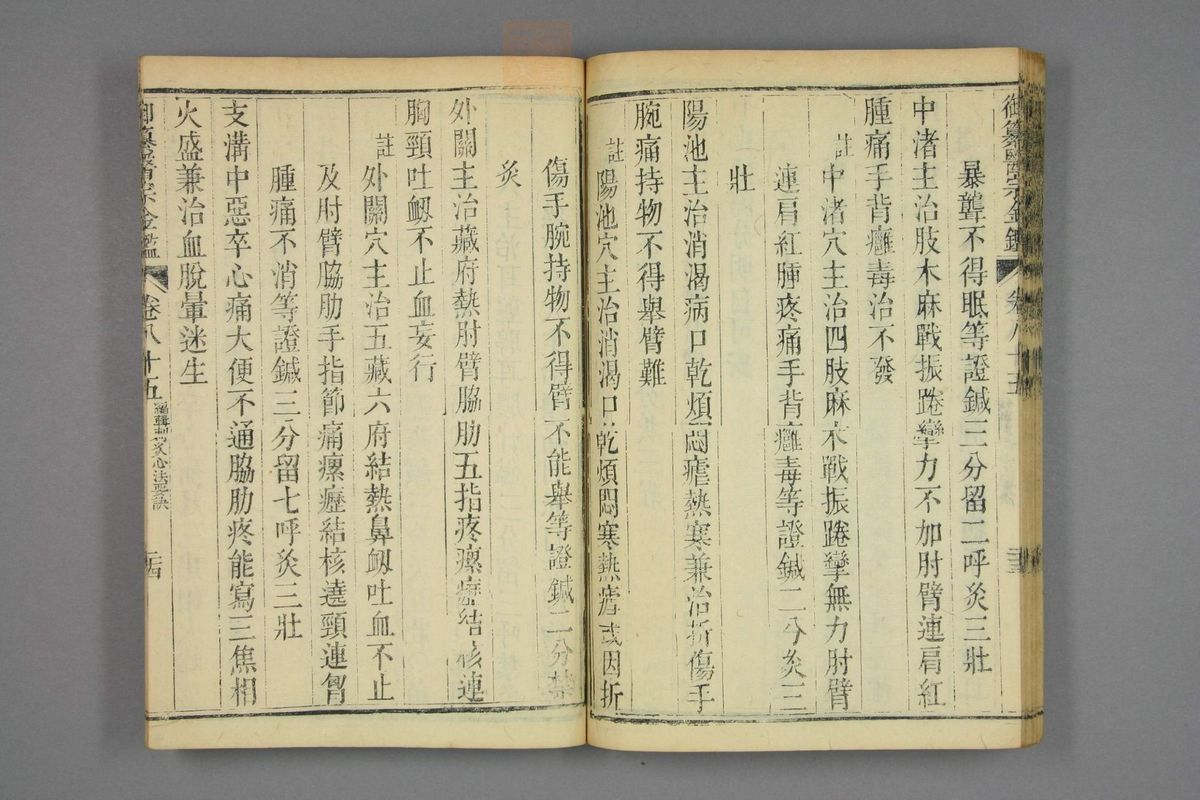 御纂醫宗金鑑 卷八十五 二三
暴聾不得眠等證鍼三分留二呼炙三壯
中渚主治肢木麻戰振踡攣力不加肘臂連肩紅
腫痛手背癰毒治不發
註中渚穴主治四肢麻木戰振踡攣無力肘臂
連肩紅腫疼痛手背癰毒等證鍼二分炙三
壯
陽池主治消渴病口乾煩悶瘧熱寒兼治折傷手
腕痛持物不得舉臂難
註陽池穴主治消渴口乾煩悶寒熱瘧或因折
傷手腕持物不得臂不能舉等證鍼二分禁
炙
外關主治藏府熱肘臂脇肋五指疼瘰癧結核連
胸頸吐衂不止血妄行
註外關穴主治五藏六府結熱鼻衂吐血不止
及肘臂脇肋手指節痛瘰癧結核遶頸連胷
腫痛不消等證鍼三分留七呼炙三壯
支溝中惡卒心痛大便不通脇肋疼能寫三焦相
火盛兼治血脫暈迷生
御纂醫宗金鑑 卷八十五 編輯刺灸心法要訣 二四